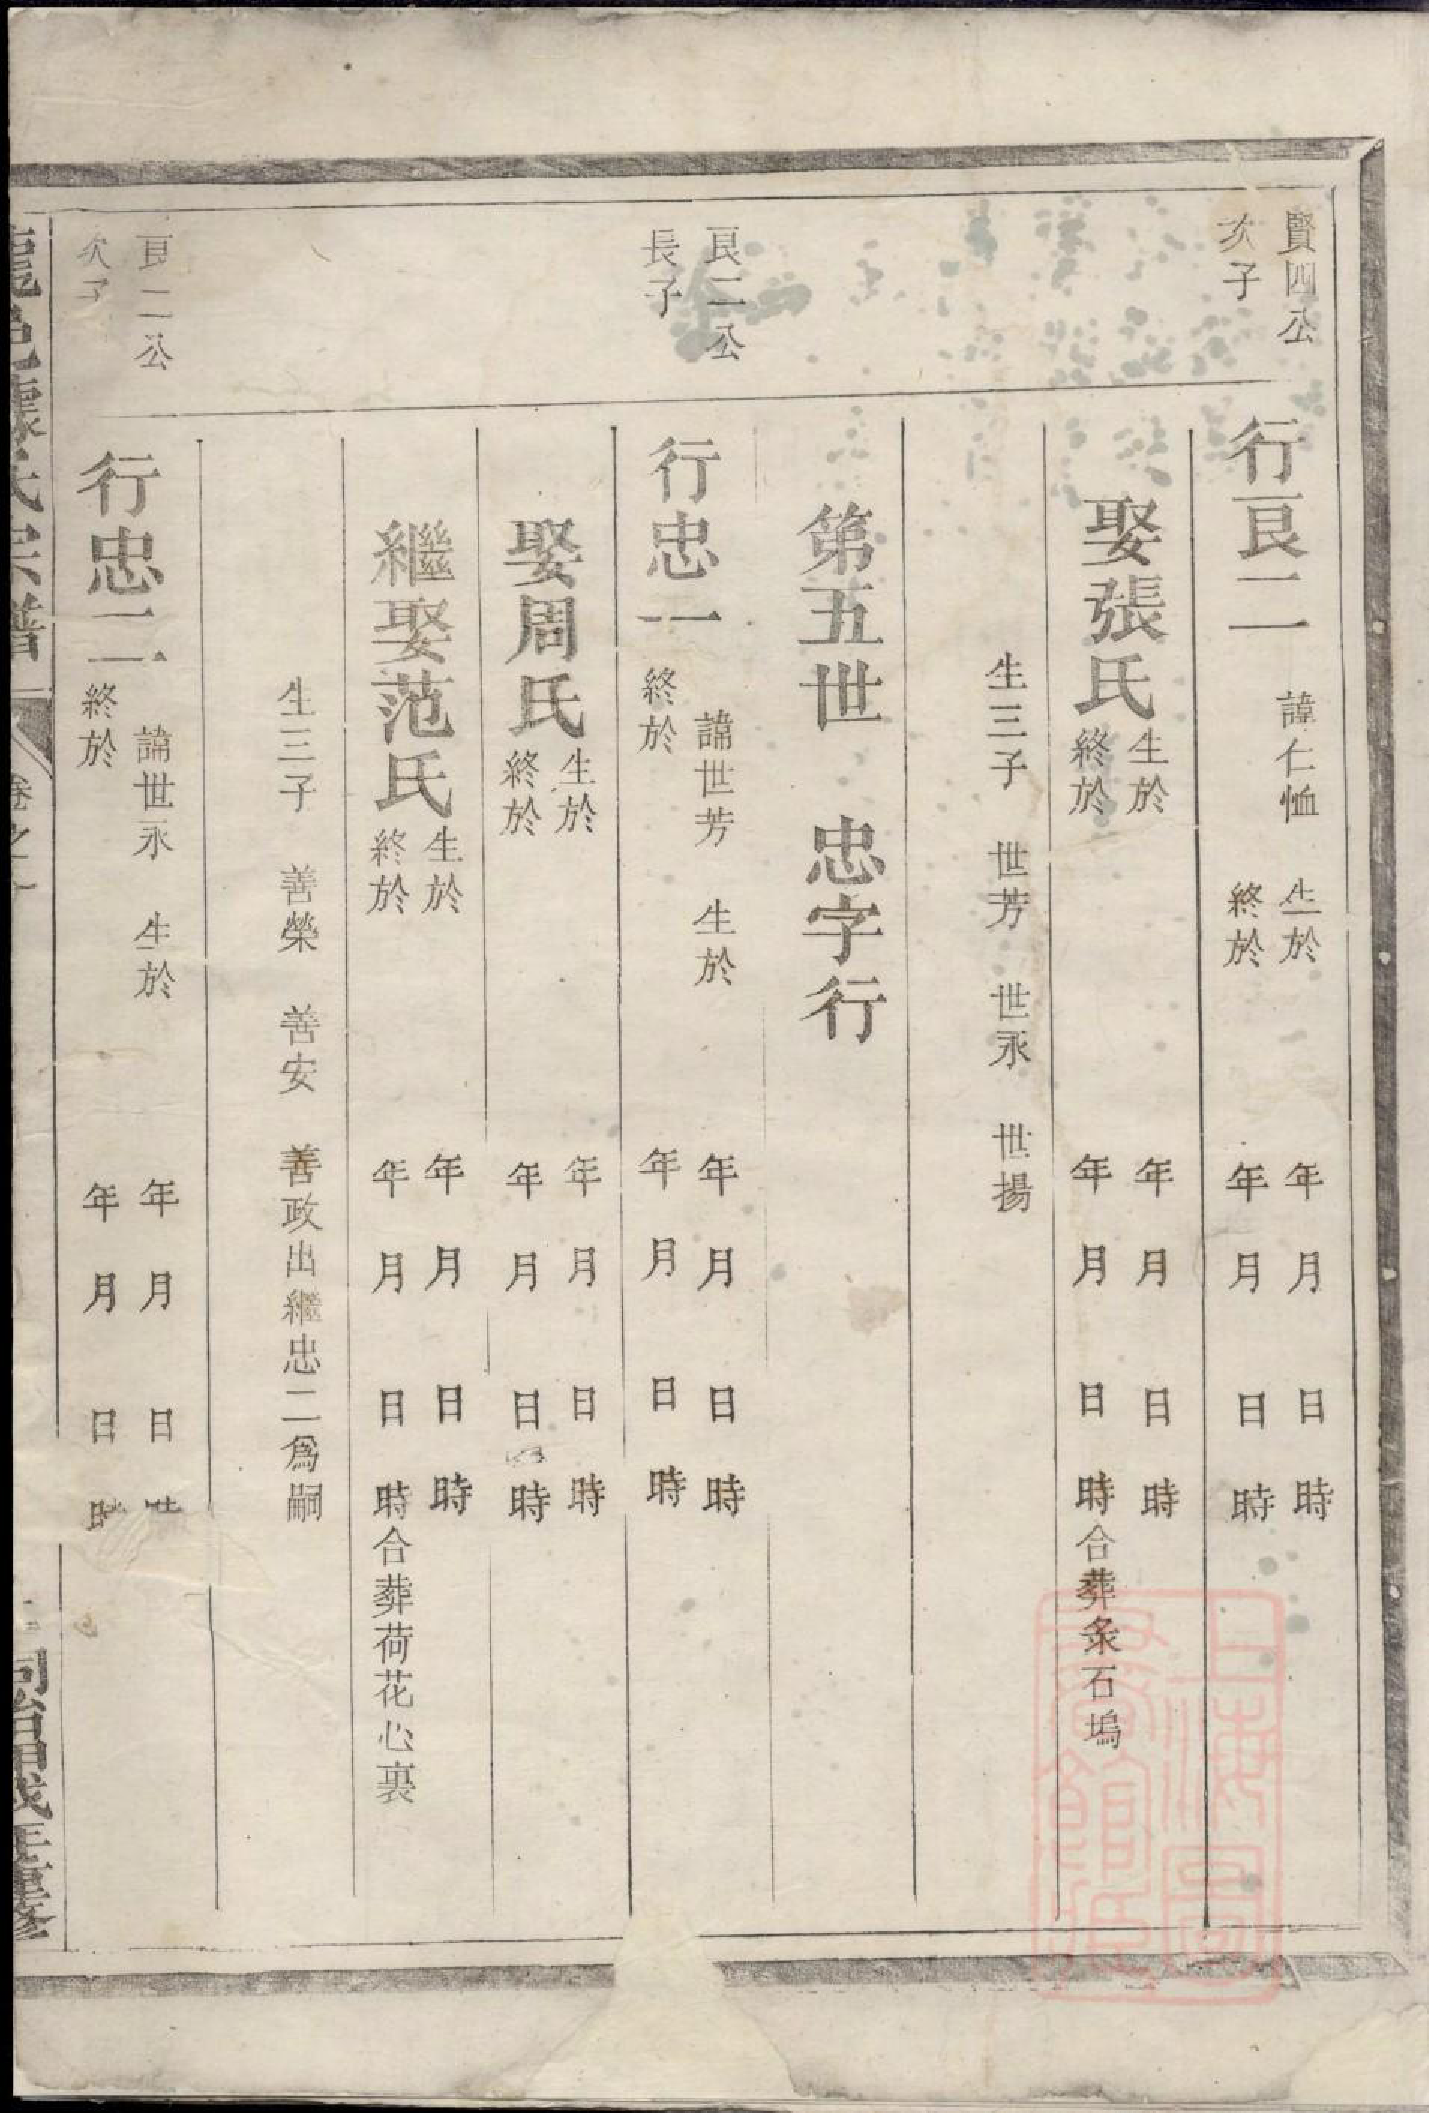 賢四公
次子
行良二
諱仁恤 生於 年 月 日 時
終於 年 月 日 時
娶張氏
生於 年 月 日 時
終於 年 月 日 時合葬条石塢
生三子 世芳 世永 世揚
第五世 忠字行
良二公
長子
行忠一
諱世芳 生於 年 月 日 時
終於 年 月 日 時
娶周氏
生於 年 月 日 時
終於 年 月 日 時
繼娶范氏
生於 年 月 日 時
終於 年 月 日 時合葬荷花心裏
生三子 善榮 善安 善政出繼忠二爲嗣
良二公
次子
行忠二
諱世永 生於 年 月 日 時
終於 年 月 日 時
氏宗譜
卷之
同治甲戌年重修
上海圖書館藏